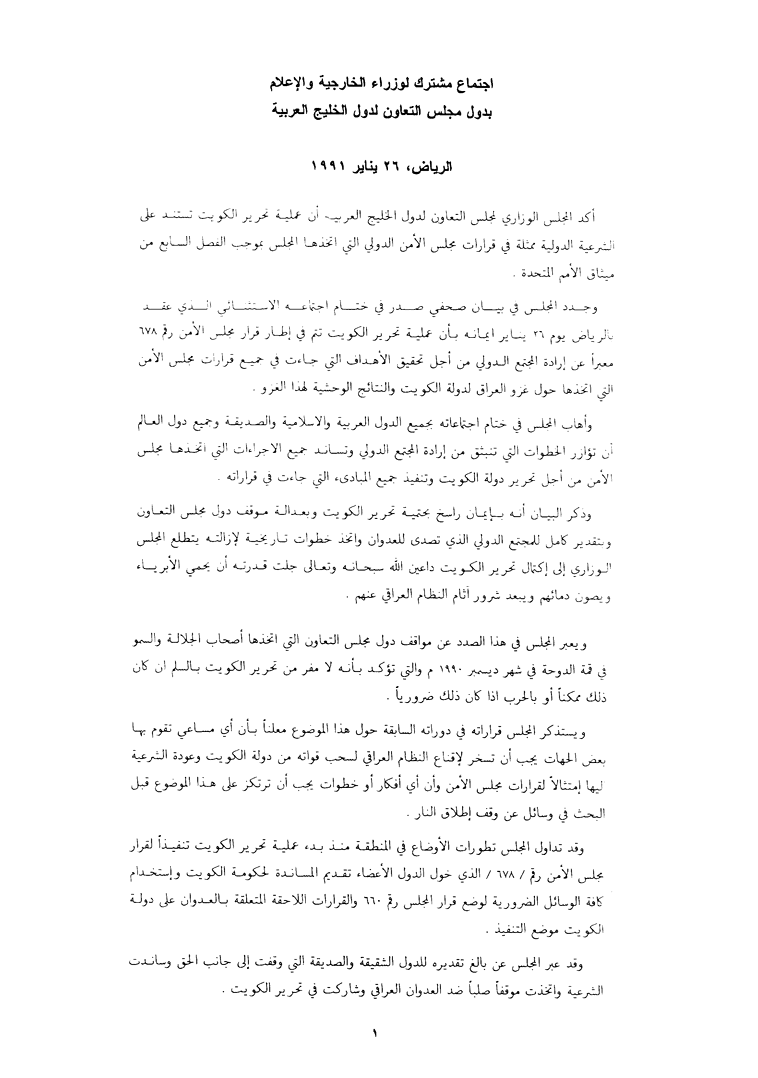 اجتماع مشترك لوزراء الخارجية والإعلام
بدول مجلس التعاون لدول الخليج العربية
الرياض، ٢٦ يناير ١٩٩١
أكد المجلس الوزاري لمجلس التعاون لدول الخليج العربية أن عملية تحرير الكويت تستند على
الشرعية الدولية ممثلة في قرارات مجلس الأمن الدولي التي اتخذها المجلس بموجب الفصل السابع من
ميثاق الأمم المتحدة .
وجدد المجلس في بيان صحفي صدر في ختام اجتماعه الاستثنائي الذي عقد
بالرياض يوم ٢٦ يناير ايمانه بأن عملية تحرير الكويت تتم في إطار قرار مجلس الأمن رقم ٦٧٨
معبراً عن إرادة المجتمع الدولي من أجل تحقيق الأهداف التي جاءت في جميع قرارات مجلس الأمن
التي اتخذها حول غزو العراق لدولة الكويت والنتائج الوحشية لهذا الغزو .
وأهاب المجلس في ختام اجتماعاته بجميع الدول العربية والاسلامية والصديقة وجميع دول العالم
أن تؤازر الخطوات التي تنبثق من إرادة المجتمع الدولي وتساند جميع الاجراءات التي اتخذها مجلس
الأمن من أجل تحرير دولة الكويت وتنفيذ جميع المبادىء التي جاءت في قراراته .
وذكر البيان أنه بإيمان راسخ بحتمية تحرير الكويت وبعدالة موقف دول مجلس التعاون
وبتقدير كامل للمجتمع الدولي الذي تصدى للعدوان واتخذ خطوات تاريخية لإزالته يتطلع المجلس
الوزاري إلى إكتمال تحرير الكويت داعين الله سبحانه وتعالى جلت قدرته أن يحمي الأبرياء
ويصون دمائهم ويبعد شرور آثام النظام العراقي عنهم .
ويعبر المجلس في هذا الصدد عن مواقف دول مجلس التعاون التي اتخذها أصحاب الجلالة والسمو
في قمة الدوحة في شهر ديسمبر ١٩٩٠ م والتي تؤكد بأنه لا مفر من تحرير الكويت بالسلم ان كان
ذلك ممكناً أو بالحرب اذا كان ذلك ضرورياً .
ويستذكر المجلس قراراته في دوراته السابقة حول هذا الموضوع معلناً بأن أي مساعي تقوم بها
بعض الجهات يجب أن تسخر لإقناع النظام العراقي لسحب قواته من دولة الكويت وعودة الشرعية
ليها إمتثالاً لقرارات مجلس الأمن وأن أي أفكار أو خطوات يجب أن ترتكز على هذا الموضوع قبل
البحث في وسائل عن وقف إطلاق النار .
وقد تداول المجلس تطورات الأوضاع في المنطقة منذ بدء عملية تحرير الكويت تنفيذاً لقرار
مجلس الأمن رقم / ٦٧٨ / الذي خول الدول الأعضاء تقديم المساندة لحكومة الكويت وإستخدام
كافة الوسائل الضرورية لوضع قرار المجلس رقم ٦٦٠ والقرارات اللاحقة المتعلقة بالعدوان على دولة
الكويت موضع التنفيذ .
وقد عبر المجلس عن بالغ تقديره للدول الشقيقة والصديقة التي وقفت إلى جانب الحق وساندت
الشرعية واتخذت موقفاً صلباً ضد العدوان العراقي وشاركت في تحرير الكويت .
١